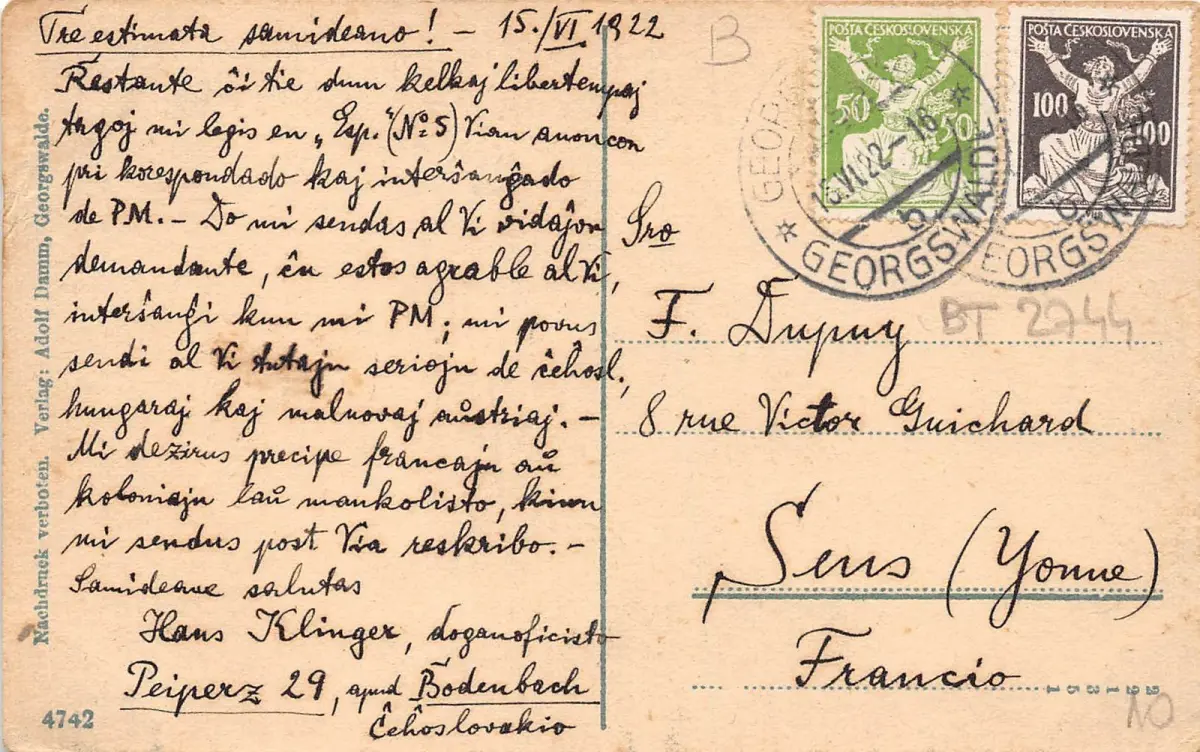 Tre estimata samideano! - 15./VI 1922
Restante ĉi tie dum kelkaj libertempaj
tagoj mi legis en „Esp." (No 5) Vian anoncon
pri korespondado kaj interŝanĝado
de PM. - Do mi sendas al Vi vidaĵon
demandante, ĉu estos agrable al Vi,
interŝanĝi kun mi PM; mi povus
sendi al Vi tutajn seriojn de ĉeĥosl.,
hungaraj kaj malnovaj aŭstriaj. -
Mi dezirus precipe francajn aŭ
koloniajn laŭ mankolisto, kiun
mi sendus post Via reskribo. -
Samideane salutas
Hans Klinger, doganoficisto
Peiperz 29, apud Bodenbach
Ĉeĥoslovakio
Nachdruck verboten. Verlag: Adolf Damm, Georgswalde.
4742
B
POŠTA ČESKOSLOVENSKÁ
50 50
POŠTA ČESKOSLOVENSKÁ
100 100
GEORGSWALDE
15.VI.22-16
b
GEORGSWALDE
BT 2744
Sro
F. Dupuy
8 rue Victor Guichard
Sens (Yonne)
Francio